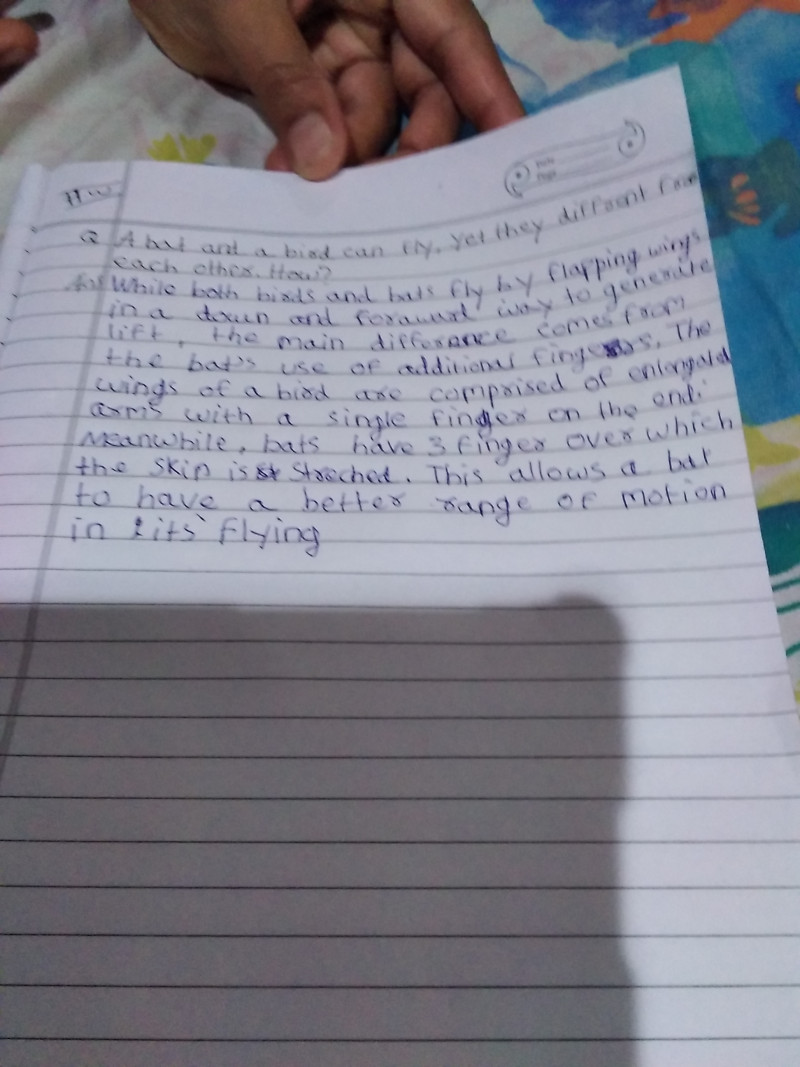 H.W.
Q A bat and a bird can fly, yet they diffrent from
each other. How?
Ans While both birds and bats fly by flapping wings
in a down and foraward way to generate
lift, the main difference comes from
the bat's use of additional fingers. The
wings of a bird are comprised of enlongated
arms with a single finger on the end.
Meanwhile, bats have 3 finger over which
the skin is streched. This allows a bat
to have a better range of motion
in its flying